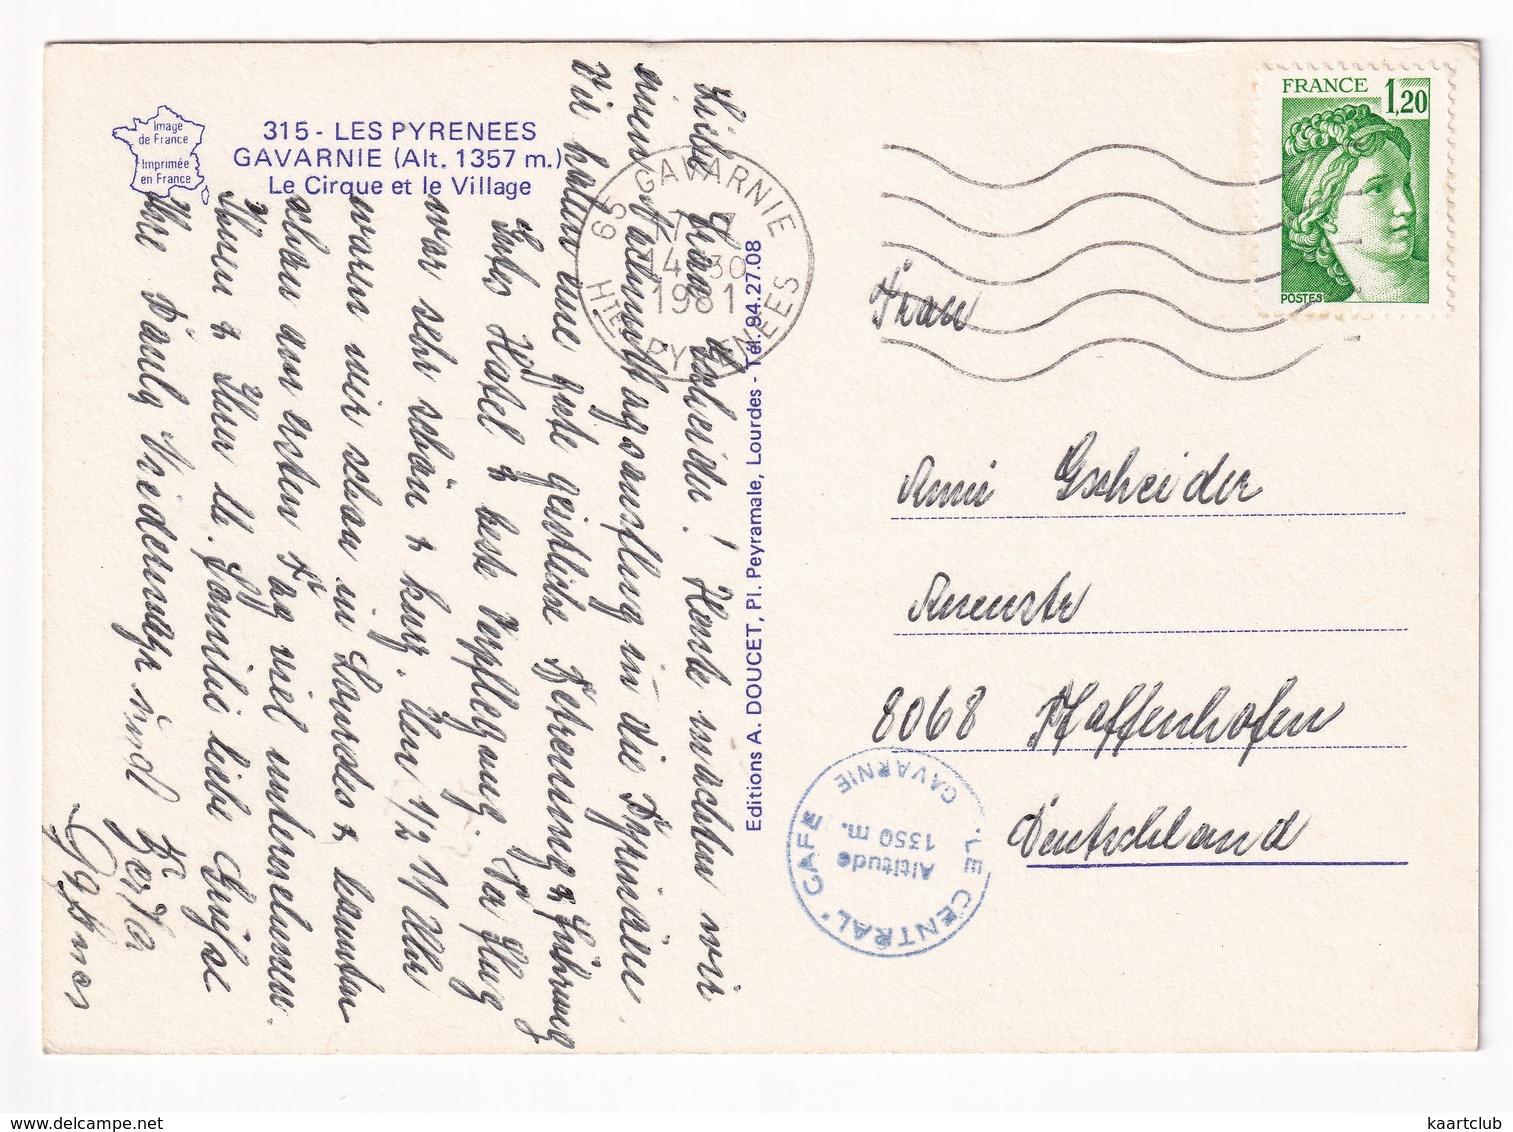 Image
de France
Imprimée
en France
315 - LES PYRENEES
GAVARNIE (Alt. 1357 m.)
Le Cirque et le Village
Liebe Frau Gscheider! Heute machten wir
einen Nachmittagsausflug in die Pyrenäen
Wir hatten eine gute geistliche Betreuung & Führung
Gutes Hotel & beste Verpflegung. Der Flug
war sehr schön & kurz. Um 1/2 11 Uhr
waren wir schon in Lourdes & konnten
schon am ersten Tag viel unternehmen.
Ihnen & Ihrer lb. Familie liebe Grüße
Ihre Pauly Niedermayr und Berta
Editions A. DOUCET, Pl. Peyramale, Lourdes - Tél. 94.27.08
65 GAVARNIE
14 30
1981
Hte PYRENEES
FRANCE 1,20
POSTES
Frau
Anni Gscheider
8068 Pfaffenhofen
Deutschland
"LE CENTRAL" CAFE
GAVARNIE
Altitude
1350 m.
kaartclub
delcampe.net